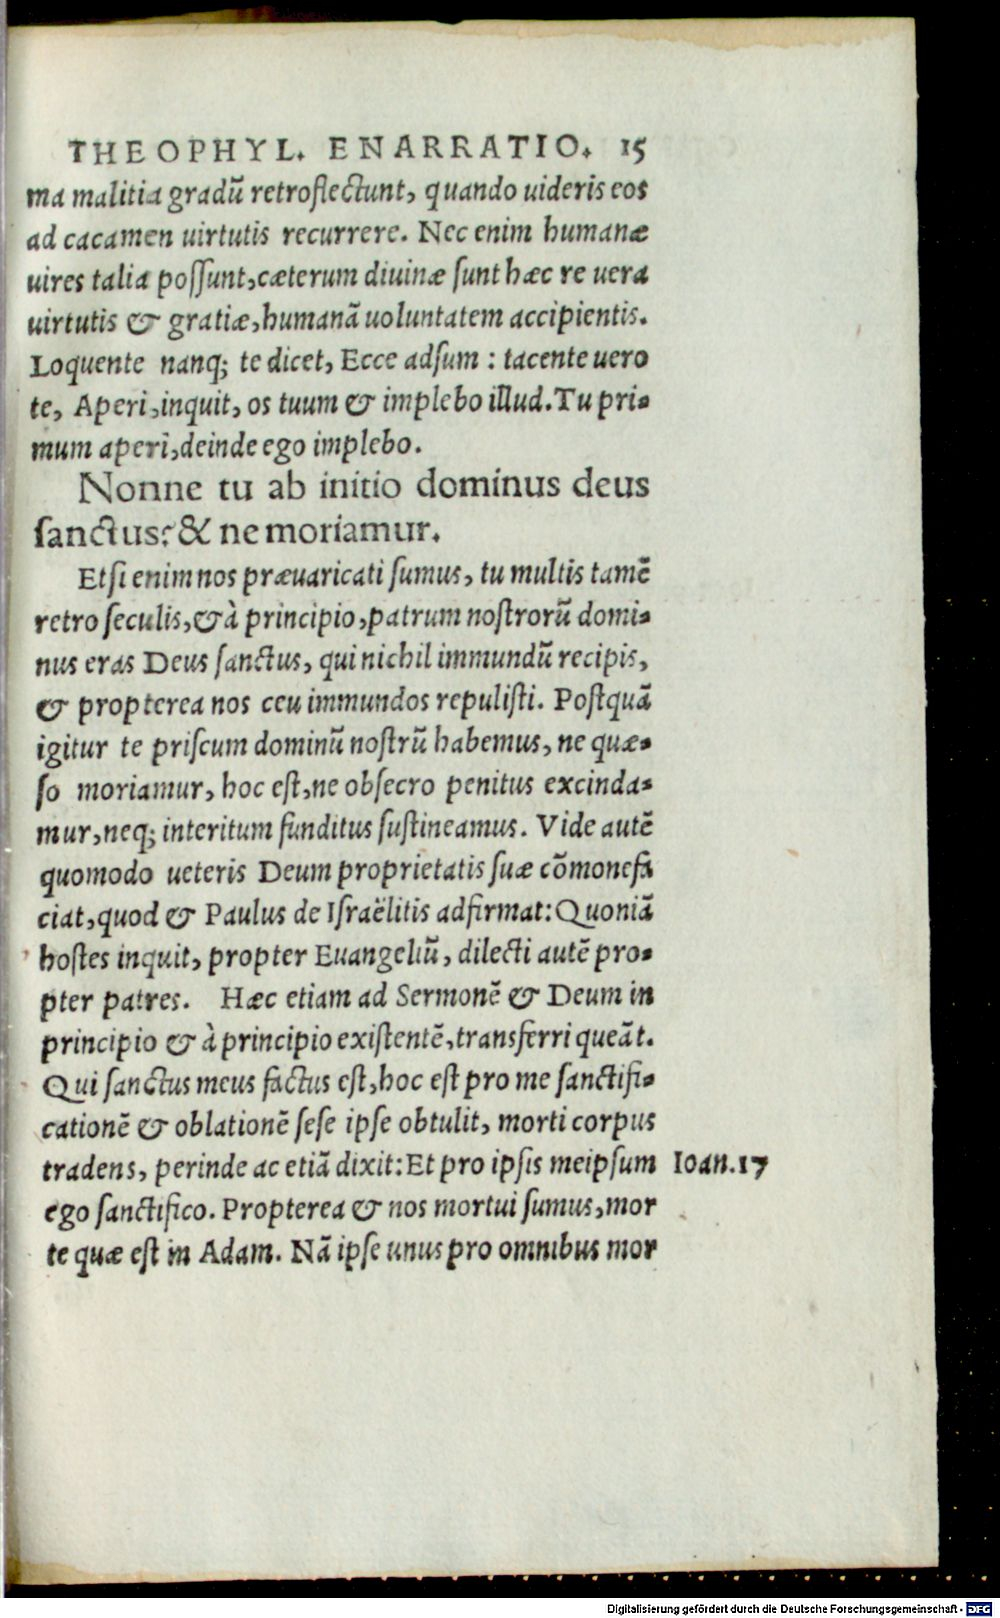 THEOPHYL. ENARRATIO. 15
ma malitia gradū retroflectunt, quando uideris eos
ad cacamen uirtutis recurrere. Nec enim humanæ
uires talia possunt, cæterum diuinæ sunt hæc re uera
uirtutis & gratiæ, humanā uoluntatem accipientis.
Loquente nanq; te dicet, Ecce adsum : tacente uero
te, Aperi, inquit, os tuum & implebo illud. Tu pri-
mum aperi, deinde ego implebo.
Nonne tu ab initio dominus deus
sanctus? & ne moriamur.
Etsi enim nos præuaricati sumus, tu multis tamē
retro seculis, & à principio, patrum nostrorū domi-
nus eras Deus sanctus, qui nichil immundū recipis,
& propterea nos ceu immundos repulisti. Postquā
igitur te priscum dominū nostrū habemus, ne quæ-
so moriamur, hoc est, ne obsecro penitus excinda-
mur, neq; interitum funditus sustineamus. Vide autē
quomodo ueteris Deum proprietatis suæ cōmonefa
ciat, quod & Paulus de Israëlitis adfirmat: Quoniā
hostes inquit, propter Euangeliū, dilecti autē pro-
pter patres. Hæc etiam ad Sermonē & Deum in
principio & à principio existentē, transferri queāt.
Qui sanctus meus factus est, hoc est pro me sanctifi-
cationē & oblationē sese ipse obtulit, morti corpus
tradens, perinde ac etiā dixit: Et pro ipsis meipsum Ioan.17
ego sanctifico. Propterea & nos mortui sumus, mor
te quæ est in Adam. Nā ipse unus pro omnibus mor
Digitalisierung gefördert durch die Deutsche Forschungsgemeinschaft - DFG